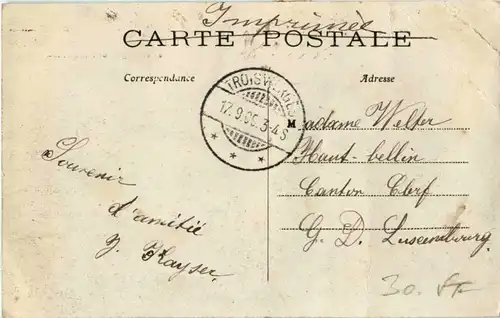 Imprimée
CARTE POSTALE
Correspondance
Adresse
TROISVIERGES
17.9.06.3-4S
Madame Welter
Haut-bellin
Canton Clerf
G. D. Luxembourg.
Souvenir
d'amitié
J. Kayser.
30.